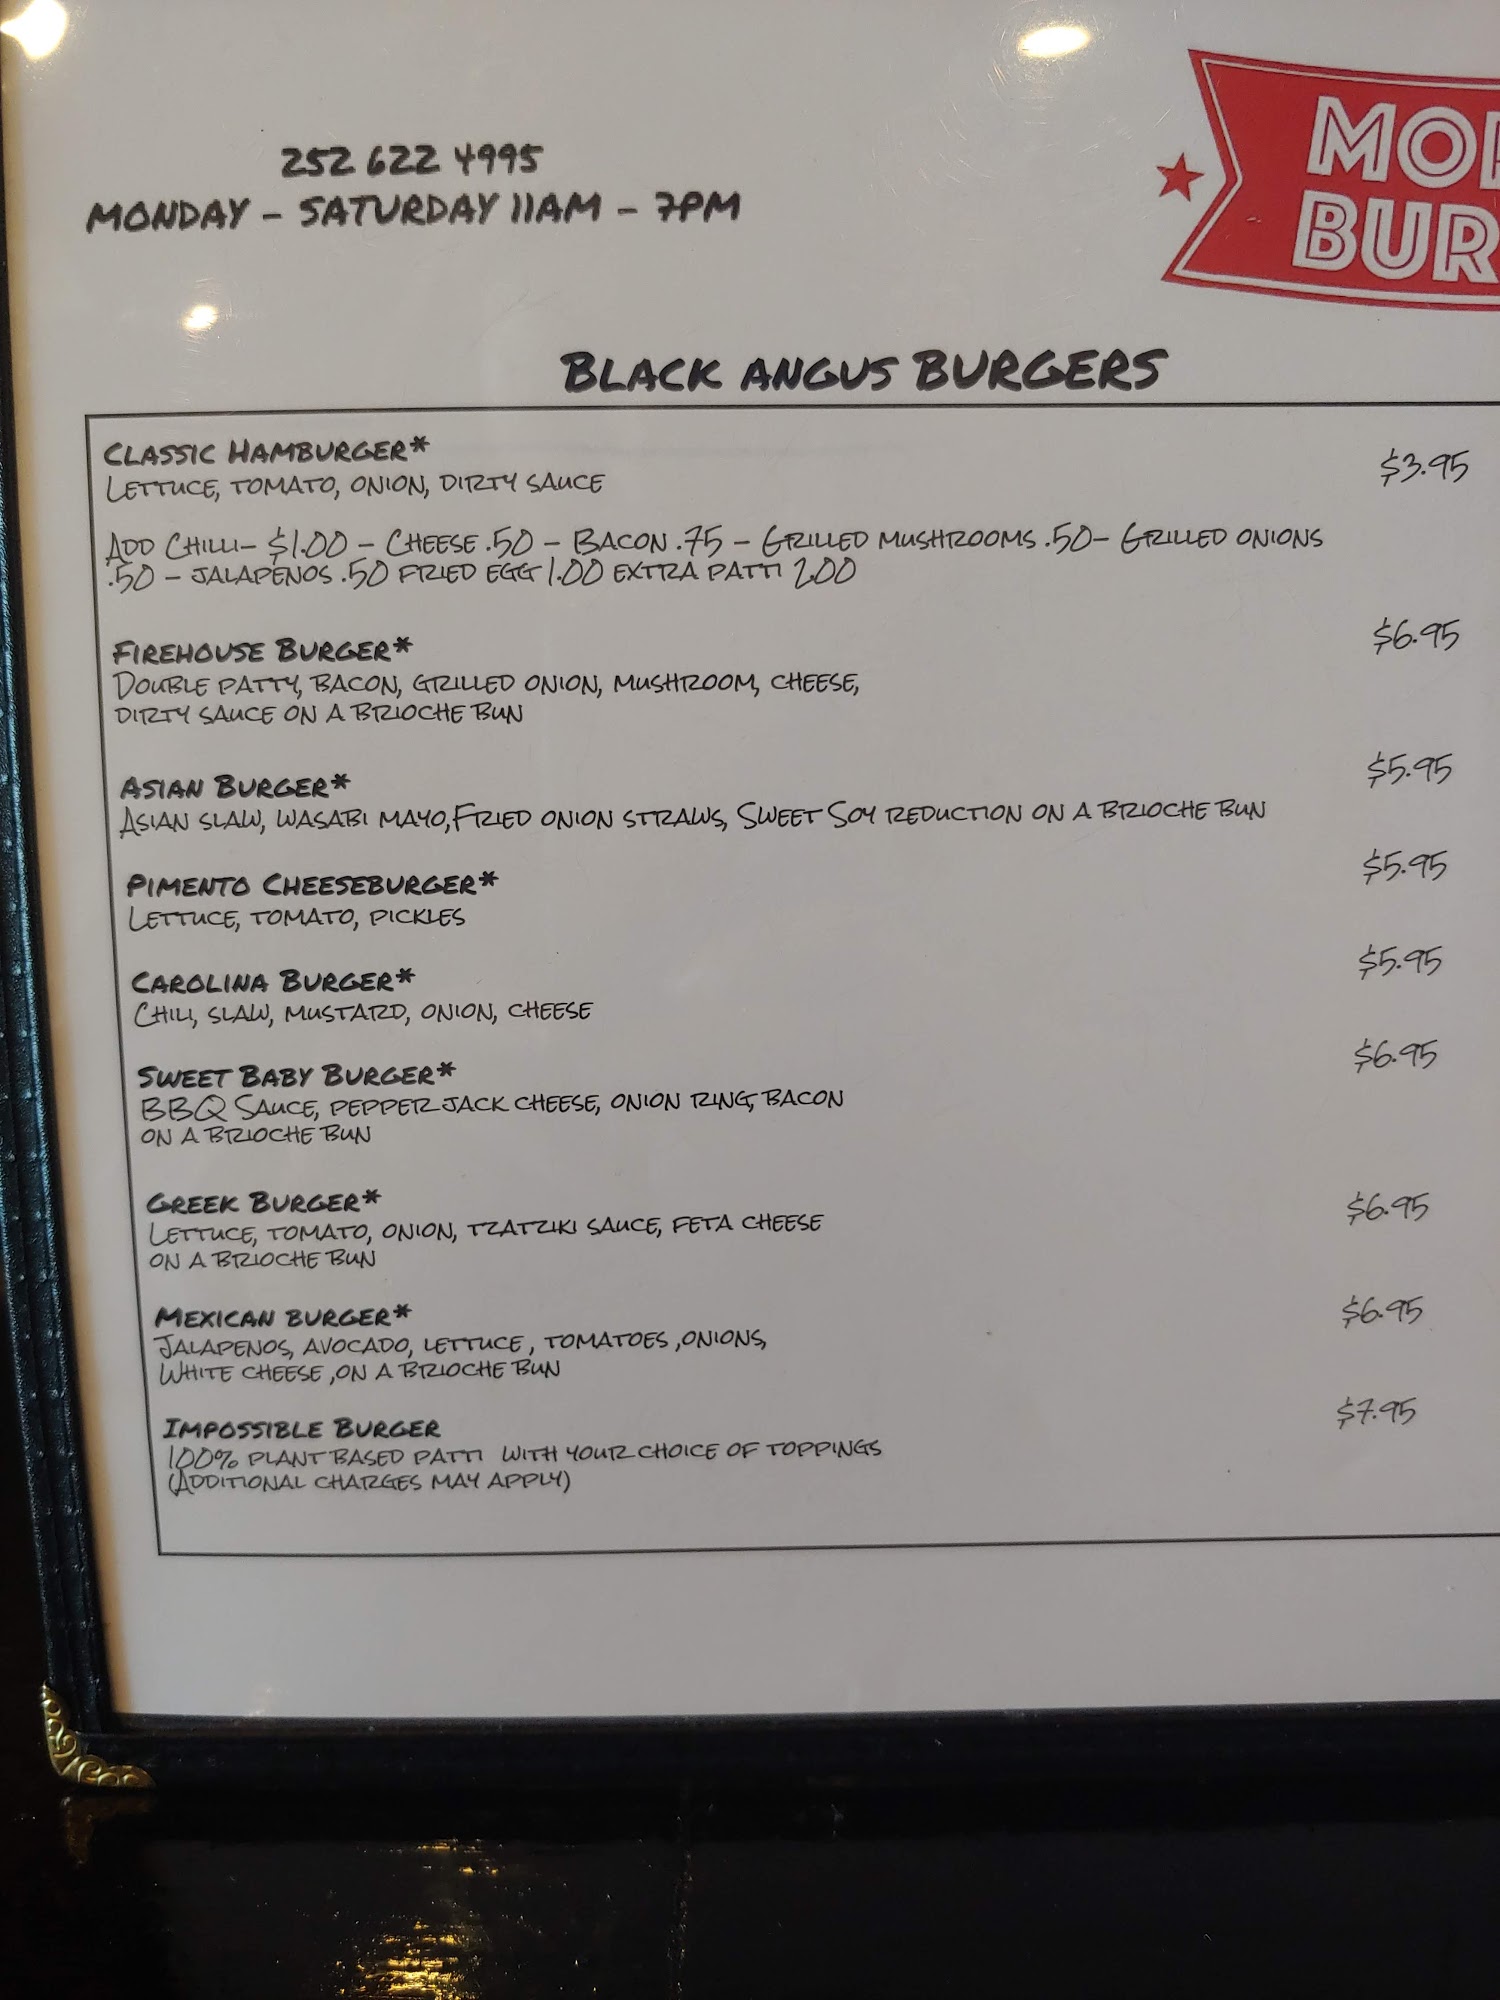 252 622 4995
MONDAY - SATURDAY 11AM - 7PM
BUR
BLACK ANGUS BURGERS
CLASSIC HAMBURGER* $3.95
LETTUCE, TOMATO, ONION, DIRTY SAUCE
ADD CHILLI- $1.00 - CHEESE .50 - BACON .75 - GRILLED MUSHROOMS .50- GRILLED ONIONS
.50 - JALAPENOS .50 FRIED EGG 1.00 EXTRA PATTI 2.00
FIREHOUSE BURGER* $6.95
DOUBLE PATTY, BACON, GRILLED ONION, MUSHROOM, CHEESE,
DIRTY SAUCE ON A BRIOCHE BUN
ASIAN BURGER* $5.95
ASIAN SLAW, WASABI MAYO,FRIED ONION STRAWS, SWEET SOY REDUCTION ON A BRIOCHE BUN
PIMENTO CHEESEBURGER* $5.95
LETTUCE, TOMATO, PICKLES
CAROLINA BURGER* $5.95
CHILI, SLAW, MUSTARD, ONION, CHEESE
SWEET BABY BURGER* $6.95
BBQ SAUCE, PEPPER JACK CHEESE, ONION RING, BACON
ON A BRIOCHE BUN
GREEK BURGER* $6.95
LETTUCE, TOMATO, ONION, TZATZIKI SAUCE, FETA CHEESE
ON A BRIOCHE BUN
MEXICAN BURGER* $6.95
JALAPENOS, AVOCADO, LETTUCE , TOMATOES ,ONIONS,
WHITE CHEESE ,ON A BRIOCHE BUN
IMPOSSIBLE BURGER $7.95
100% PLANT BASED PATTI WITH YOUR CHOICE OF TOPPINGS
(ADDITIONAL CHARGES MAY APPLY)